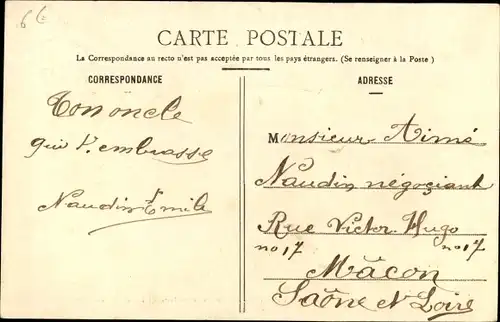 6 C
CARTE POSTALE
La Correspondance au recto n'est pas acceptée par tous les pays étrangers. (Se renseigner à la Poste)
CORRESPONDANCE
Ton oncle
qui t'embrasse
Naudin Emile
ADRESSE
Monsieur Aimé
Naudin négoçiant
Rue Victor Hugo
no 17 no 17
Mâcon
Saône et Loire